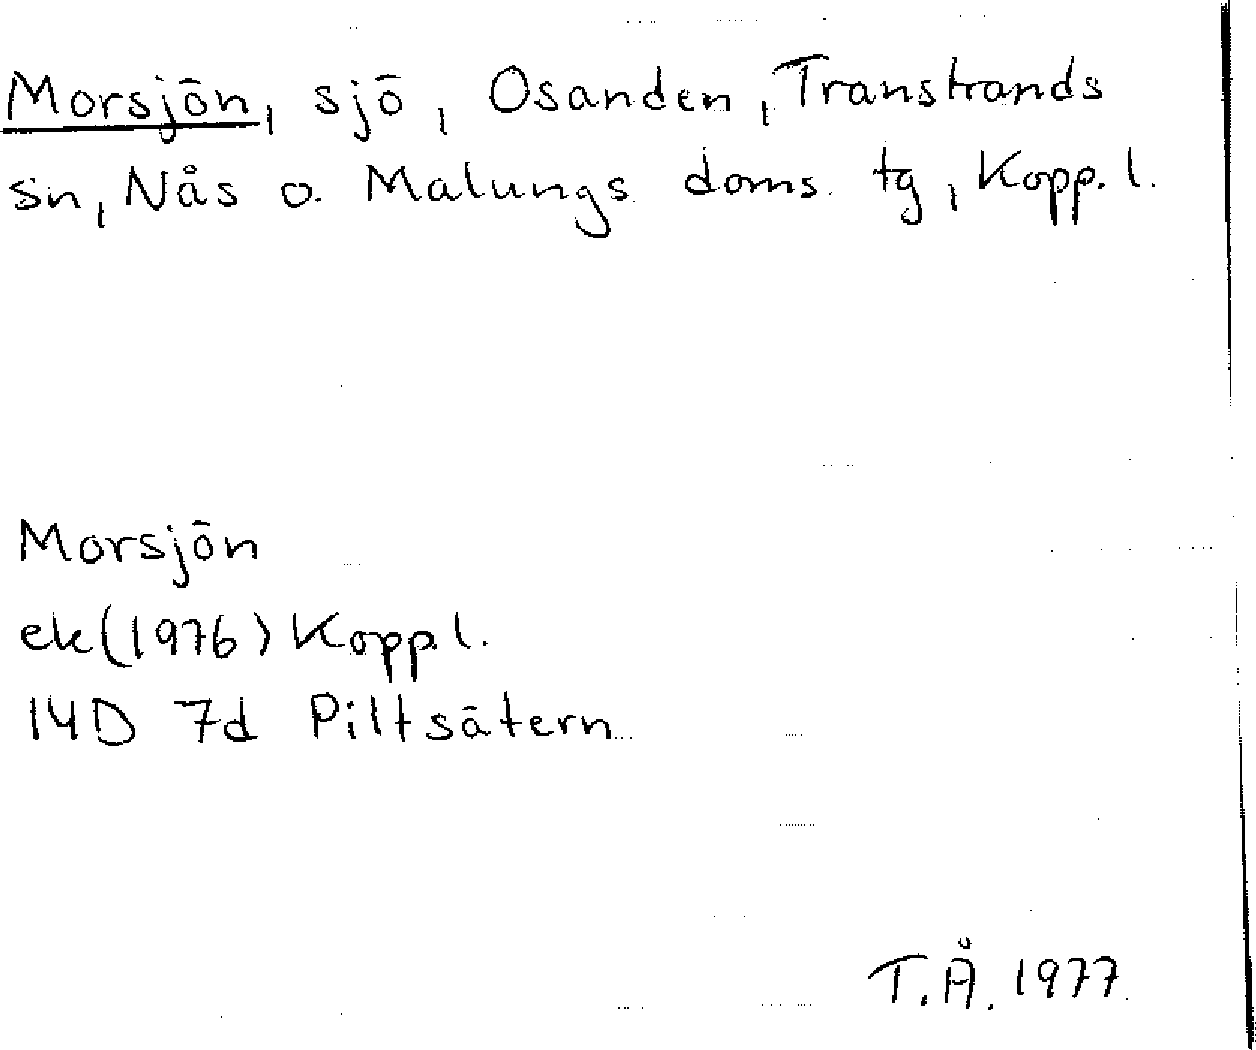 Morsjön, sjö, Osanden, Transtrands
sn, Nås o. Malungs doms. tg, Kopp. l.
Morsjön
ek(1976) Kopp l.
14D 7d Piltsätern
T.Å. 1977